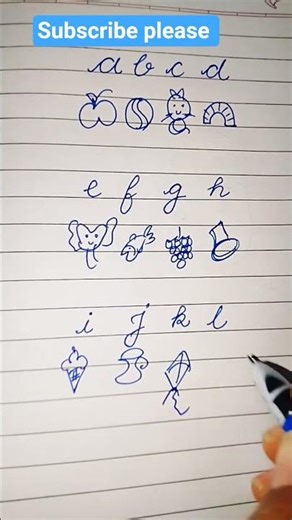 Subscribe please
a b c d
e f g h
i j k l